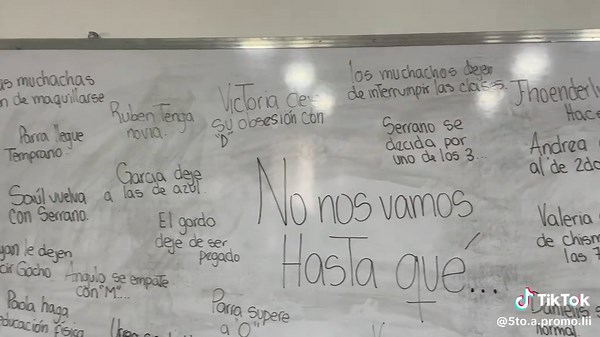 as muchachas
n de maquillarse
Parra llegue
Temprano.
Ruben Tenga
novia.
Victoria deje
su obsesión con
"D"
los muchachos dejen
de interrumpir las clases.
Serrano se
decida por
uno de los 3...
Jhoenderly
Hace
Andrea
al de 2do
Saúl vuelva
con Serrano.
Garcia deje
a las de azul.
El gordo
deje de ser
pegado
No nos vamos
Hasta qué...
Valeria
de chism
las 7
yan le dejen
cir Gocho
Angulo se empate
con "M"...
Paola haga
educación física
Parra supere
a "O"
Danielis s
normal
TikTok
@5to.a.promo.liii